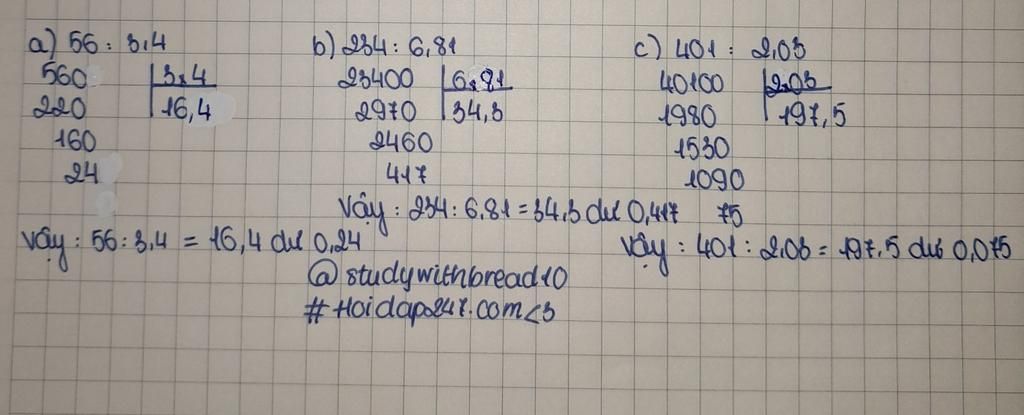 a) 56 : 3,4
560 3,4
220 16,4
160
24
b) 234 : 6,81
23400 6,81
2970 34,3
2460
417
Vậy : 234 : 6,81 = 34,3 dư 0,417
c) 401 : 2,03
40100 2,03
1980 197,5
1530
1090
75
Vậy : 56 : 3,4 = 16,4 dư 0,24
Vậy : 401 : 2,03 = 197,5 dư 0,075
@studywithbread10
#Hoidap247.com<3